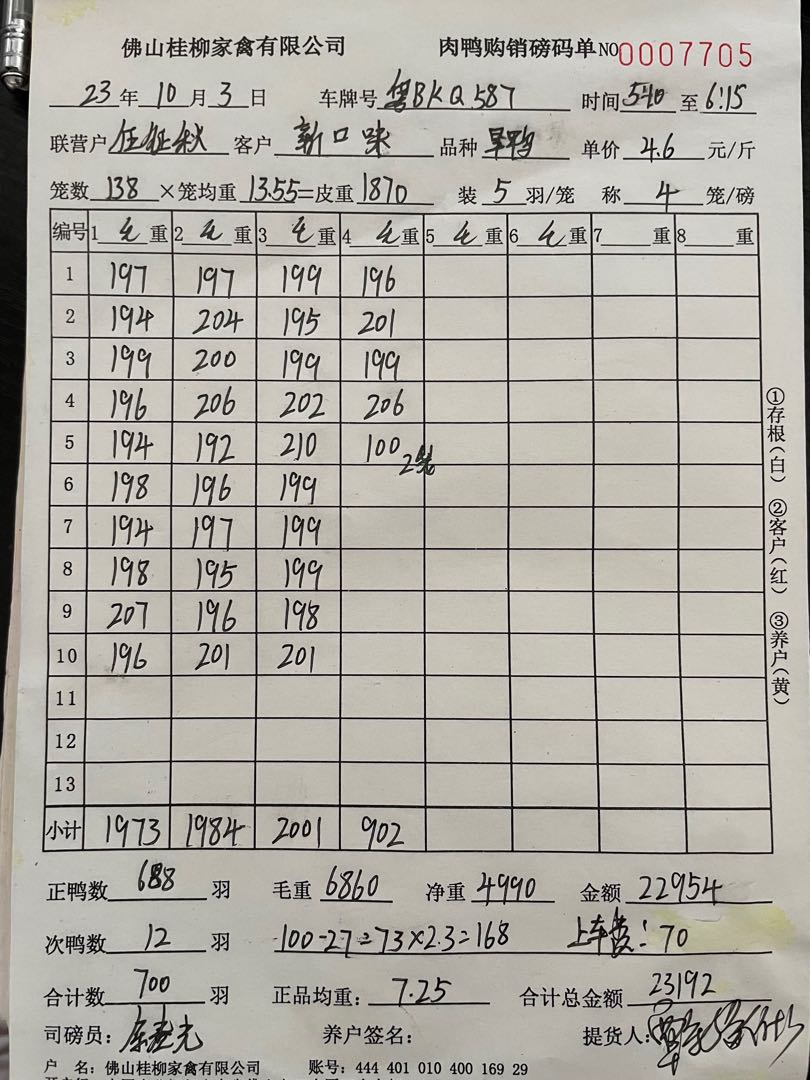 佛山桂柳家禽有限公司 肉鸭购销磅码单 NO 0007705
23年10月3日 车牌号 粤BKQ587 时间5:40至6:15
联营户 任征秋 客户 新口味 品种 旱鸭 单价 4.6 元/斤
笼数 138 ×笼均重 13.55=皮重 1870 装 5 羽/笼 称 4 笼/磅
编号 1 毛 重 2 毛 重 3 毛 重 4 毛 重 5 毛 重 6 毛 重 7 重 8 重
1 197 197 199 196
2 194 204 195 201
3 199 200 199 199
4 196 206 202 206
5 194 192 210 100 2笼
6 198 196 199
7 194 197 199
8 198 195 199
9 207 196 198
10 196 201 201
11
12
13
小计 1973 1984 2001 902
正鸭数 688 羽 毛重 6860 净重 4990 金额 22954
次鸭数 12 羽 100-27=73×2.3=168 上车费: 70
合计数 700 羽 正品均重: 7.25 合计总金额 23192
司磅员: 养户签名: 提货人:
户 名: 佛山桂柳家禽有限公司 账号: 444 401 010 400 169 29
①存根(白) ②客户(红) ③养户(黄)